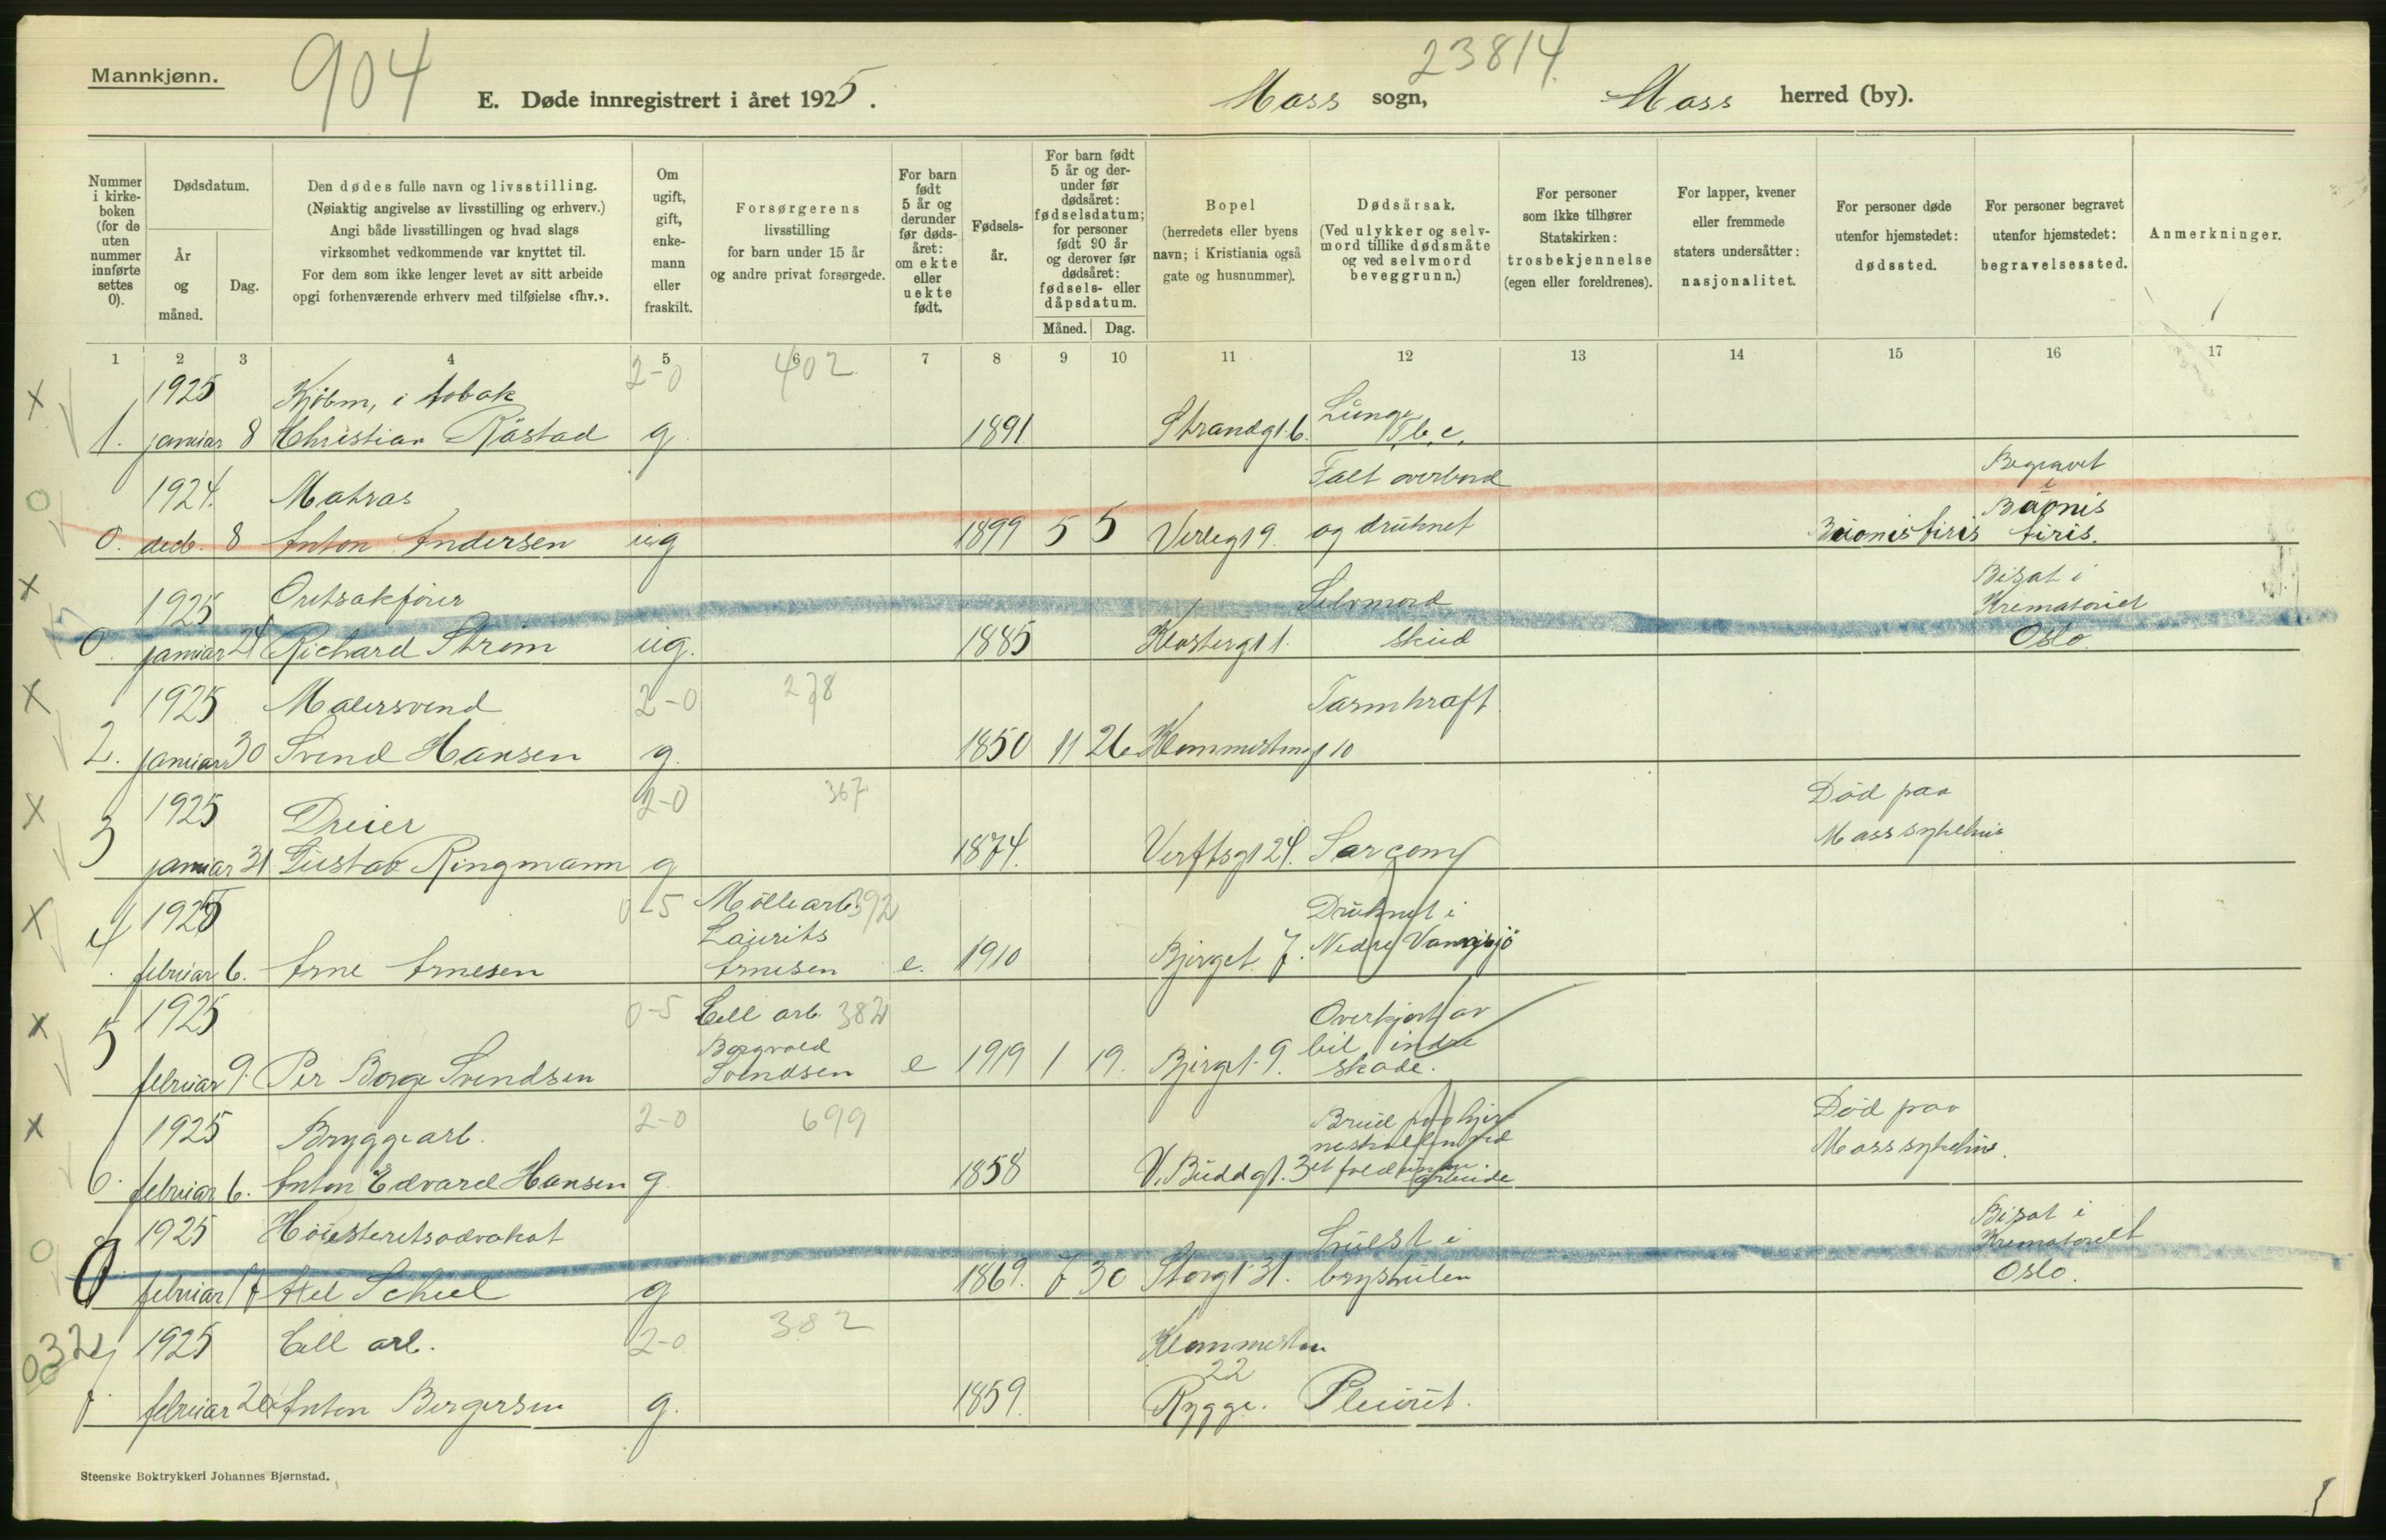 Mannkjønn.
904
23814.
E. Døde innregistrert i året 1925.
Moss sogn, Moss herred (by).
Nummer i kirke-boken (for de uten nummer innførte settes 0).
Dødsdatum.
År og måned.
Dag.
Den dødes fulle navn og livsstilling.
(Nøiaktig angivelse av livsstilling og erhverv.)
Angi både livsstillingen og hvad slags
virksomhet vedkommende var knyttet til.
For dem som ikke lenger levet av sitt arbeide
opgi forhenværende erhverv med tilføielse «fhv.».
Om ugift, gift, enke-mann eller fraskilt.
Forsørgerens
livsstilling
for barn under 15 år
og andre privat forsørgede.
For barn født 5 år og derunder før døds-året: om ekte eller uekte født.
Fødsels-år.
For barn født 5 år og der-under før dødsåret: fødselsdatum; for personer født 90 år og derover før dødsåret: fødsels- eller dåpsdatum.
Måned. Dag.
Bopel
(herredets eller byens
navn; i Kristiania også
gate og husnummer).
Dødsårsak.
(Ved ulykker og selv-
mord tillike dødsmåte
og ved selvmord
beveggrunn.)
For personer
som ikke tilhører
Statskirken:
trosbekjennelse
(egen eller foreldrenes).
For lapper, kvener
eller fremmede
staters undersåtter:
nasjonalitet.
For personer døde
utenfor hjemstedet:
dødssted.
For personer begravet
utenfor hjemstedet:
begravelsessted.
Anmerkninger.
1 2 3 4 5 6 7 8 9 10 11 12 13 14 15 16 17
1925 Kjöbm, i tobak 2-0 402 Lunge
1. januar 8 Christian Råstad g. 1891 Strandgt. 6. T.b.c.
1924. Matros Falt overbord Begravet i
0. decb. 8 Anton Andersen ug 1899 5 5 Verlegt 9. og druknet
1925 Overretsakförer Selvmord Bisat i Krematoriet
0. januar 24 Richard Ström ug. 1885 Klostergt 1. skud Oslo.
1925 Malersvend 2-0 278 Tarmkraft
2. januar 30 Svend Hansen g. 1850 11 26 10
1925 Dreier 2-0 367 Död paa
3 januar 31 Gustav Ringmann g 1874. Verftsgt 24. Sarcom Moss sykehus
1925 0-5 Möllearb. 392 Druknet i
4. februar 6. Arne Arnesen Laurits Arnesen e. 1910 7. Nedre Vansjö
1925 0-5 Cell arb. 382 Overkjört av
5 februar 9. Per Borge Svendsen Svendsen e 1919 1 19. 9. bil indre skade.
1925 Bryggearb. 2-0 699 Död paa
6. februar 6. Anton Edvard Hansen g. 1858 V. Buddgt. 3 Moss sykehus.
1925 Höiesteretsadvokat Svulst i Bisat i Krematoriet
0 februar 17 Axel Scheel g 1869. 7 30 Storgt. 31. brysthulen Oslo.
1925 Cell arb. 2-0 382
7. februar 20 Anton Bergersen g. 1859. 22 Rygge. Pleurit.
Steenske Boktrykkeri Johannes Bjørnstad.